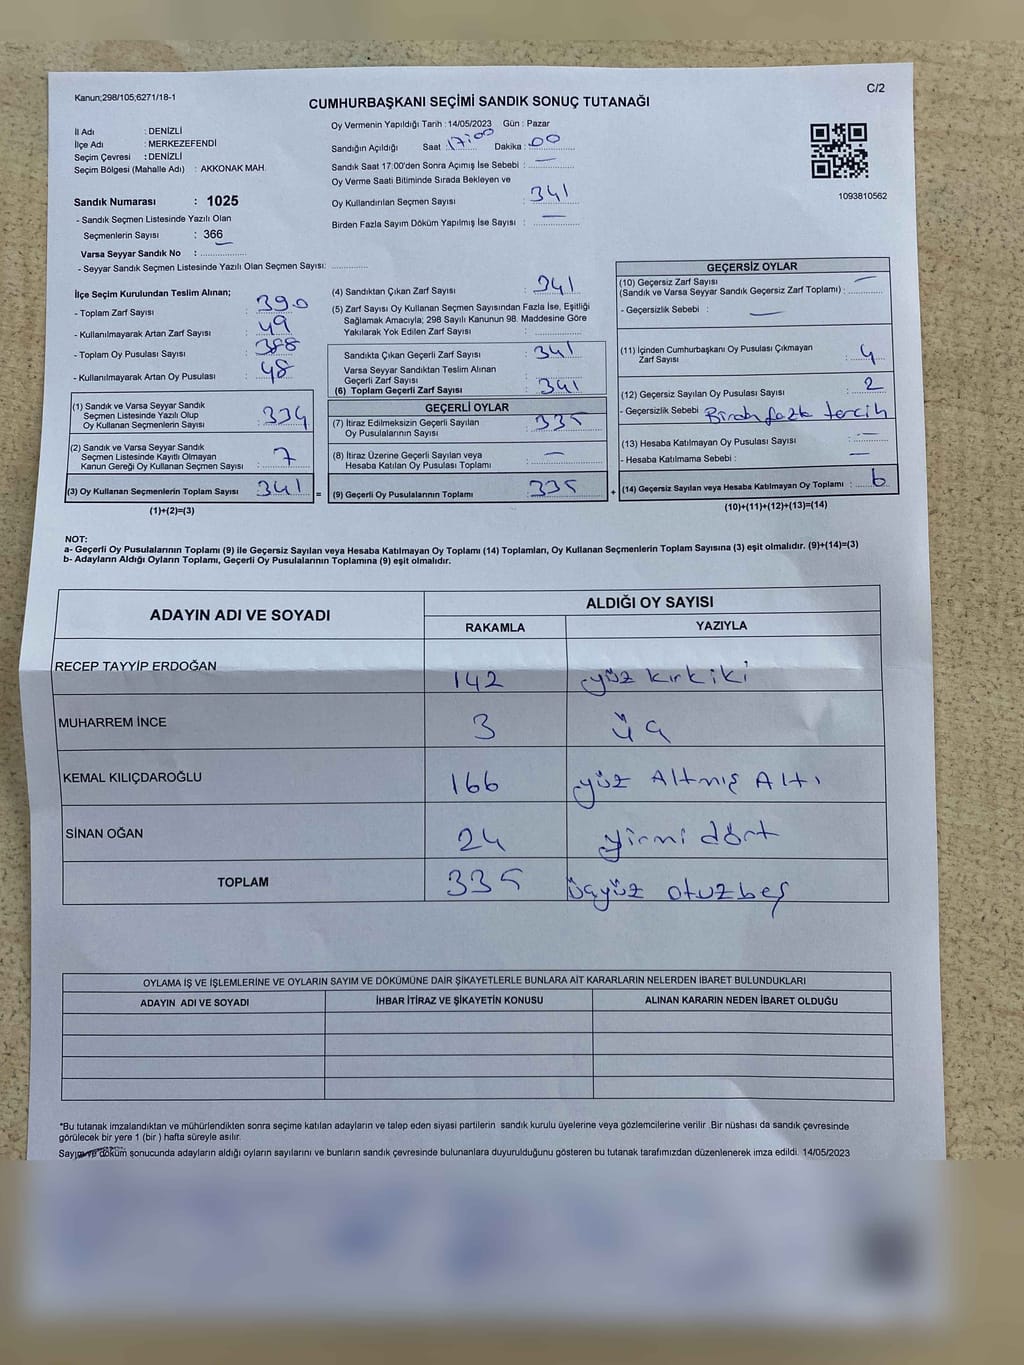 Kanun;298/105;6271/18-1
C/2
CUMHURBAŞKANI SEÇİMİ SANDIK SONUÇ TUTANAĞI
İl Adı : DENİZLİ
İlçe Adı : MERKEZEFENDİ
Seçim Çevresi : DENİZLİ
Seçim Bölgesi (Mahalle Adı) : AKKONAK MAH.
Sandık Numarası : 1025
- Sandık Seçmen Listesinde Yazılı Olan
Seçmenlerin Sayısı : 366
Varsa Seyyar Sandık No :
- Seyyar Sandık Seçmen Listesinde Yazılı Olan Seçmen Sayısı:
Oy Vermenin Yapıldığı Tarih : 14/05/2023 Gün : Pazar
Sandığın Açıldığı Saat : 17:00 Dakika : 00
Sandık Saat 17:00'den Sonra Açımış İse Sebebi : —
Oy Verme Saati Bitiminde Sırada Bekleyen ve
Oy Kullandırılan Seçmen Sayısı : 341
Birden Fazla Sayım Döküm Yapılmış İse Sayısı : —
1093810562
İlçe Seçim Kurulundan Teslim Alınan;
- Toplam Zarf Sayısı : 390
- Kullanılmayarak Artan Zarf Sayısı : 49
- Toplam Oy Pusulası Sayısı : 388
- Kullanılmayarak Artan Oy Pusulası : 48
(1) Sandık ve Varsa Seyyar Sandık
Seçmen Listesinde Yazılı Olup
Oy Kullanan Seçmenlerin Sayısı : 334
(2) Sandık ve Varsa Seyyar Sandık
Seçmen Listesinde Kayıtlı Olmayan
Kanun Gereği Oy Kullanan Seçmen Sayısı : 7
(3) Oy Kullanan Seçmenlerin Toplam Sayısı : 341 =
(1)+(2)=(3)
(4) Sandıktan Çıkan Zarf Sayısı : 341
(5) Zarf Sayısı Oy Kullanan Seçmen Sayısından Fazla İse, Eşitliği
Sağlamak Amacıyla; 298 Sayılı Kanunun 98. Maddesine Göre
Yakılarak Yok Edilen Zarf Sayısı :
Sandıkta Çıkan Geçerli Zarf Sayısı : 341
Varsa Seyyar Sandıktan Teslim Alınan
Geçerli Zarf Sayısı :
(6) Toplam Geçerli Zarf Sayısı : 341
GEÇERLİ OYLAR
(7) İtiraz Edilmeksizin Geçerli Sayılan
Oy Pusulalarının Sayısı : 335
(8) İtiraz Üzerine Geçerli Sayılan veya
Hesaba Katılan Oy Pusulası Toplamı : —
(9) Geçerli Oy Pusulalarının Toplamı : 335 +
GEÇERSİZ OYLAR
(10) Geçersiz Zarf Sayısı
(Sandık ve Varsa Seyyar Sandık Geçersiz Zarf Toplamı) : —
- Geçersizlik Sebebi : —
(11) İçinden Cumhurbaşkanı Oy Pusulası Çıkmayan
Zarf Sayısı : 4
(12) Geçersiz Sayılan Oy Pusulası Sayısı : 2
- Geçersizlik Sebebi : Birden fazla tercih
(13) Hesaba Katılmayan Oy Pusulası Sayısı : —
- Hesaba Katılmama Sebebi : —
(14) Geçersiz Sayılan veya Hesaba Katılmayan Oy Toplamı : 6
(10)+(11)+(12)+(13)=(14)
NOT:
a- Geçerli Oy Pusulalarının Toplamı (9) ile Geçersiz Sayılan veya Hesaba Katılmayan Oy Toplamı (14) Toplamları, Oy Kullanan Seçmenlerin Toplam Sayısına (3) eşit olmalıdır. (9)+(14)=(3)
b- Adayların Aldığı Oyların Toplamı, Geçerli Oy Pusulalarının Toplamına (9) eşit olmalıdır.
ADAYIN ADI VE SOYADI ALDIĞI OY SAYISI
RAKAMLA YAZIYLA
RECEP TAYYİP ERDOĞAN 142 yüz kırkiki
MUHARREM İNCE 3 üç
KEMAL KILIÇDAROĞLU 166 yüz Altmış Altı
SİNAN OĞAN 24 yirmi dört
TOPLAM 335 üçyüz otuzbeş
OYLAMA İŞ VE İŞLEMLERİNE VE OYLARIN SAYIM VE DÖKÜMÜNE DAİR ŞİKAYETLERLE BUNLARA AİT KARARLARIN NELERDEN İBARET BULUNDUKLARI
ADAYIN ADI VE SOYADI İHBAR İTİRAZ VE ŞİKAYETİN KONUSU ALINAN KARARIN NEDEN İBARET OLDUĞU
*Bu tutanak imzalandıktan ve mühürlendikten sonra seçime katılan adayların ve talep eden siyasi partilerin sandık kurulu üyelerine veya gözlemcilerine verilir .Bir nüshası da sandık çevresinde
görülecek bir yere 1 (bir ) hafta süreyle asılır.
Sayım ve döküm sonucunda adayların aldığı oyların sayılarını ve bunların sandık çevresinde bulunanlara duyurulduğunu gösteren bu tutanak tarafımızdan düzenlenerek imza edildi. 14/05/2023